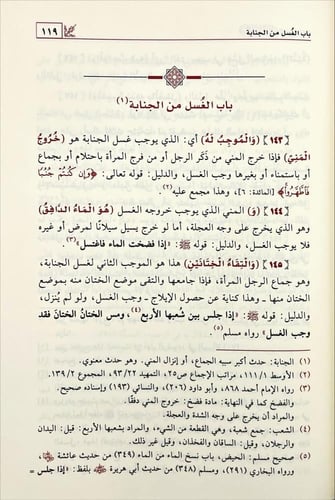 باب الغُسل من الجنابة
١١٩
باب الغُسل من الجنابة(١)
[١٤٣] (وَالْمُوجِبُ لَهُ) أي: الذي يوجب غسل الجنابة هو (خُرُوجُ
المَنِيِّ) فإذا خرج المني من ذَكَر الرجل أو من فرج المرأة باحتلام أو بجماع
أو باستمناء أو بغيرها وجب الغسل، والدليل: قوله تعالى: ﴿وَإِن كُنتُمْ جُنُبًا
فَاطَّهَّرُوا﴾ [المائدة: ٦]، وهذا مجمع عليه(٢).
[١٤٤] (وَ) المني الذي يوجب خروجه الغسل (هُوَ المَاءُ الدَّافِقُ)
وهو الذي يخرج على وجه العجلة، أما لو خرج يسيل سيلانًا لمرض أو غيره
فلا يوجب الغسل، والدليل: قوله ﷺ: «إذا فضخت الماء فاغتسل»(٣).
[١٤٥] (وَالْتِقَاءُ الْخِتَانَيْنِ) هذا هو الموجب الثاني لغسل الجنابة،
وهو جماع الرجل المرأة، فإذا جامعها والتقى موضع الختان منه بموضع
الختان منها ـ وهذا كناية عن حصول الإيلاج ـ وجب الغسل، ولو لم يُنزل،
والدليل: قوله ﷺ: «إذا جلس بين شُعبها الأربع(٤)، ومس الختانُ الختانَ فقد
وجب الغسل» رواه مسلم(٥).
(١) الجنابة: حدث أكبر سببه الجماع، أو إنزال المني. وهو حدث معنوي.
(٢) الأوسط ١١١/١، مراتب الإجماع ص٢٥، التمهيد ٩٣/٢٢، المجموع ١٣٩/٢.
(٣) رواه الإمام أحمد ٨٦٨، وأبو داود (٢٠٦)، والنسائي (١٩٣) وإسناده صحيح.
والفضخ كما في النهاية: مادة فضخ: خروج المني دفقًا.
والمراد أن يخرج على وجه الشدة والعجلة.
(٤) الشعب: جمع شعبة، وهي القطعة من الشيء، والمراد بشعبها الأربع: قيل: اليدان
والرجلان، وقيل: الساقان والفخذان، وقيل غير ذلك.
(٥) صحيح مسلم: الحيض، باب نسخ الماء من الماء (٣٤٩) من حديث عائشة
ورواه البخاري (٢٩١)، ومسلم (٣٤٨) من حديث أبي هريرة بلفظ: «إذا جلس =